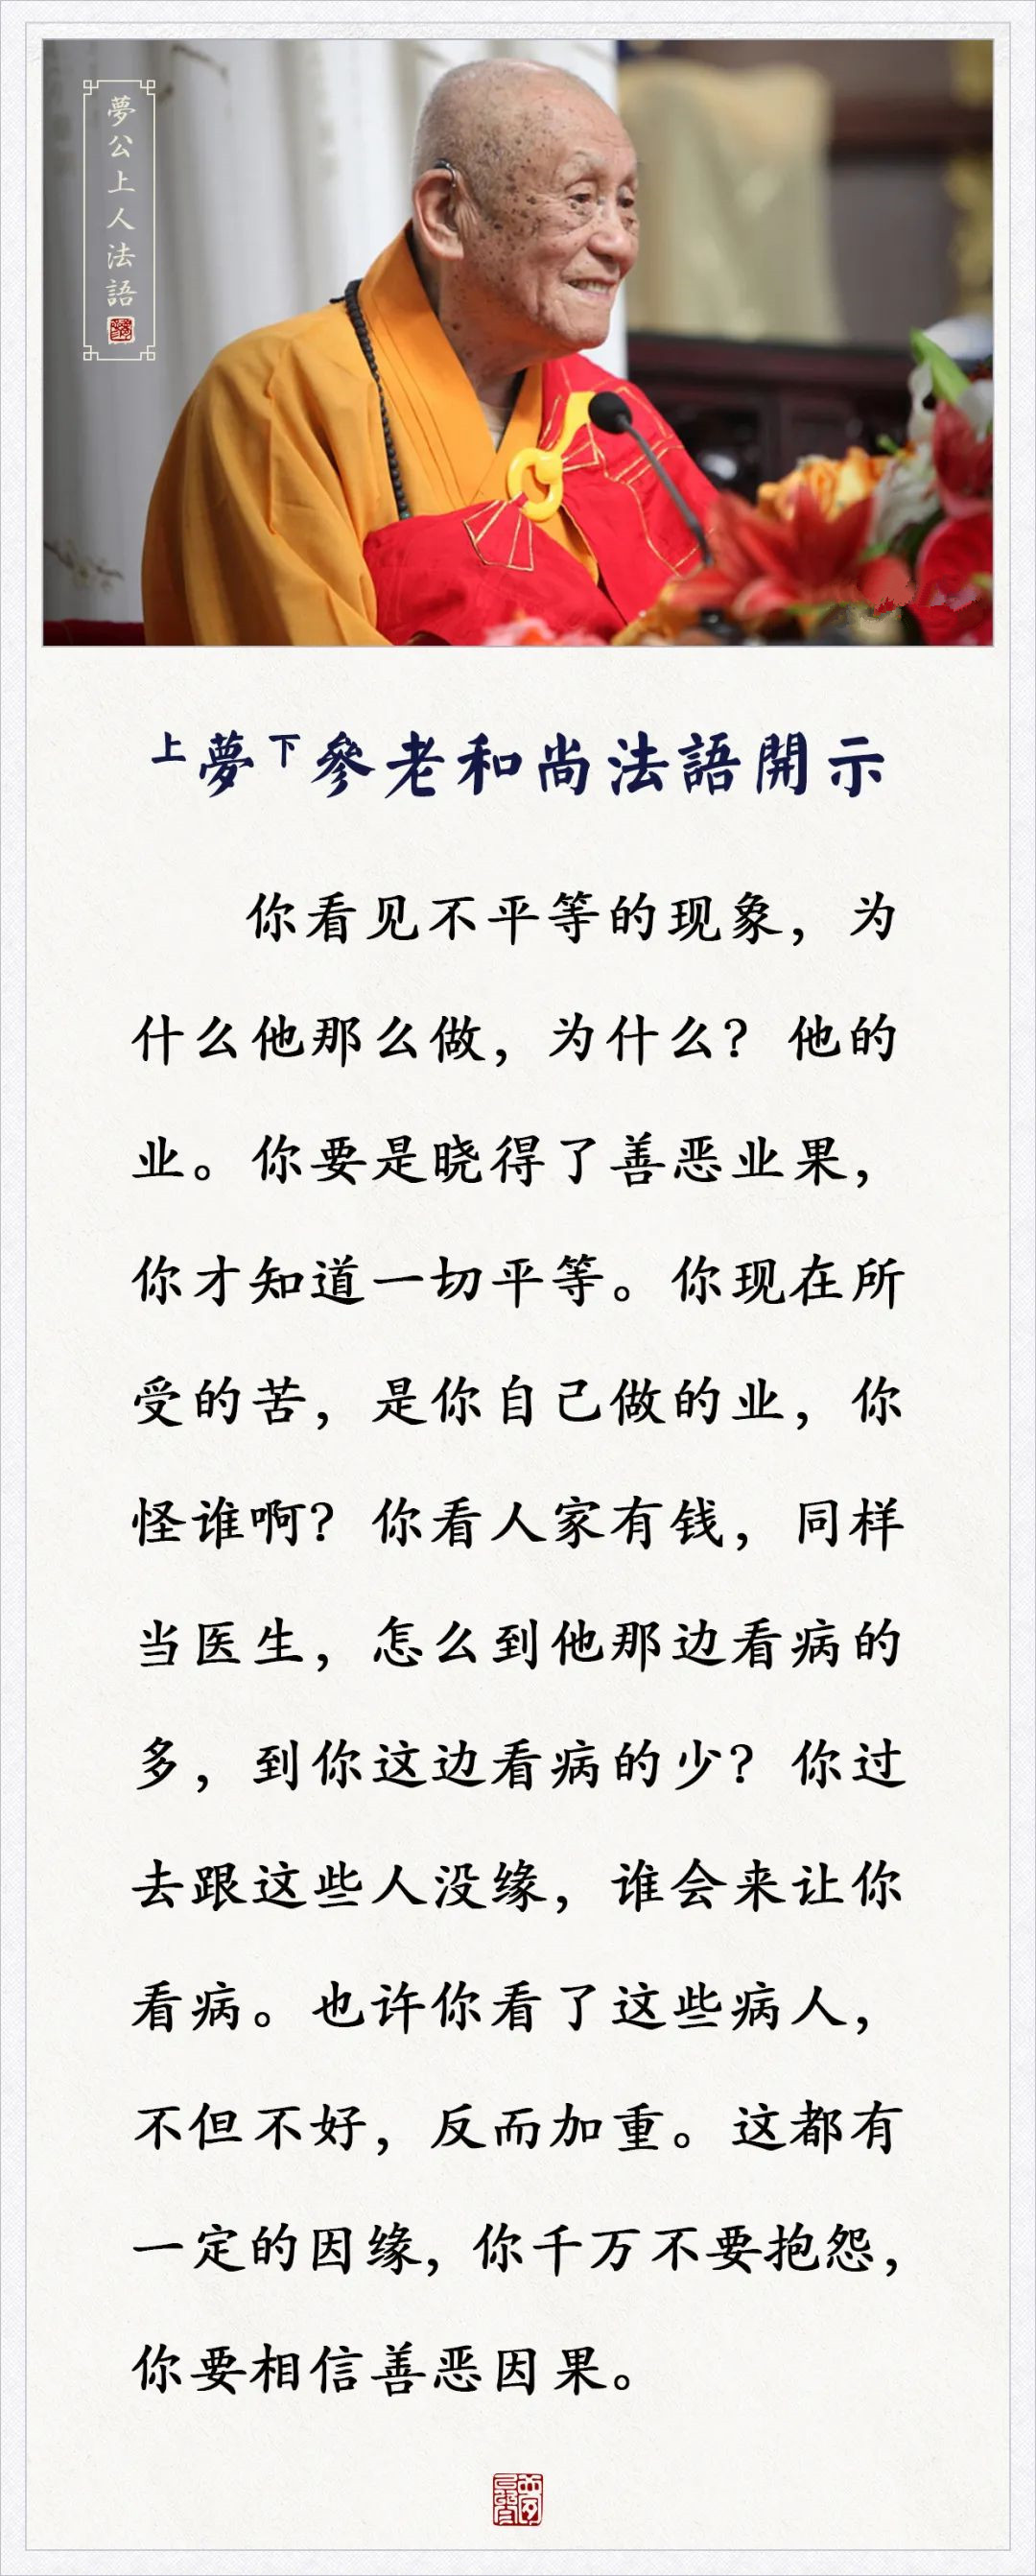 夢公上人法語
上夢下參老和尚法語開示
你看见不平等的现象，为
什么他那么做，为什么？他的
业。你要是晓得了善恶业果，
你才知道一切平等。你现在所
受的苦，是你自己做的业，你
怪谁啊？你看人家有钱，同样
当医生，怎么到他那边看病的
多，到你这边看病的少？你过
去跟这些人没缘，谁会来让你
看病。也许你看了这些病人，
不但不好，反而加重。这都有
一定的因缘，你千万不要抱怨，
你要相信善恶因果。